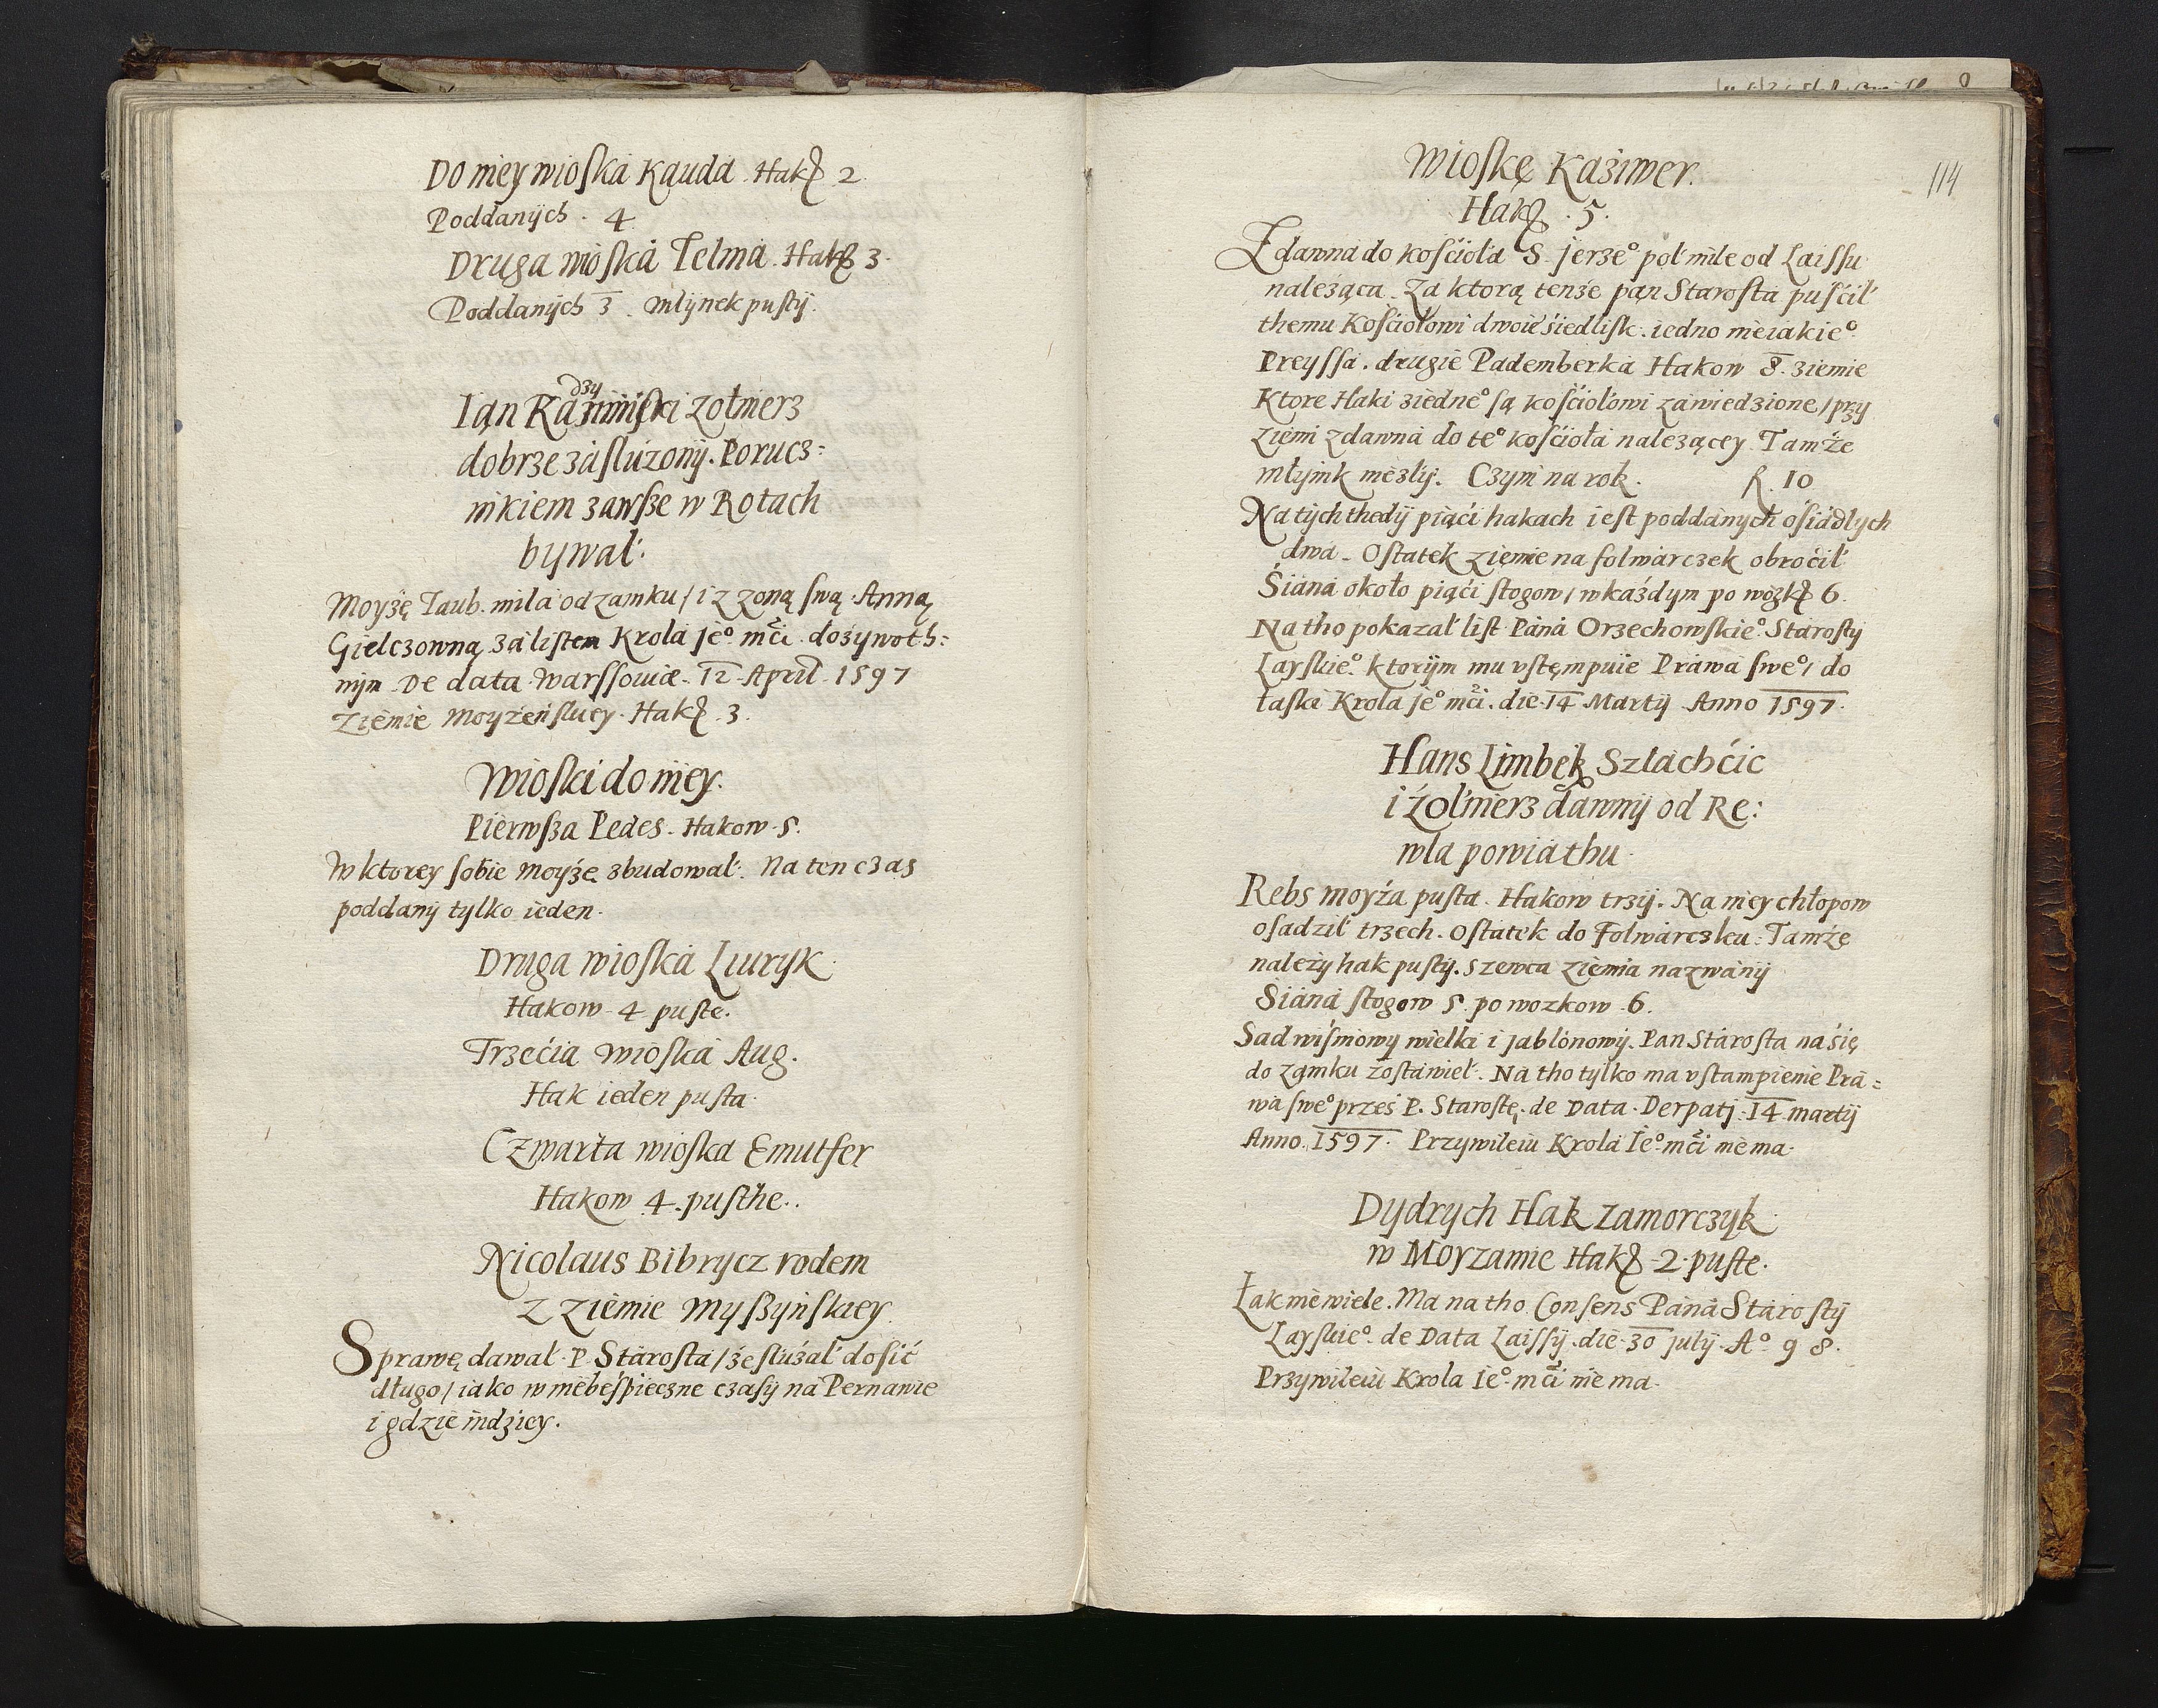 Do niey wioska Kauda. Hakow 2.
Poddanych. 4
Druga wioska Telma. Hakow 3.
Poddanych 3. Młynek pusty.
Ian Kadzyminski zołnierz
dobrze zasłuzony. Porucz=
nikiem zawsze w Rotach
bywał.
Moyzę Taub. mila od zamku / i z zoną swą Anną
Gielczowną za listem Krola Je° mći dozywoth=
nym De data Warssouiæ. 12 April 1597
Ziemie Moyzeńskiey. Hakow. 3.
Wioski do niey.
Pierwsza Pedes. Hakow. 5.
W ktorey sobie Moyzę zbudował. Na ten czas
poddany tylko ieden.
Druga wioska Liuryk
Hakow 4 puste.
Trzećia wioska Aug.
Hak ieden pusta.
Czwarta wioska Emutfer
Hakow 4. pusthe.
Nicolaus Bibrycz rodem
z ziemie Myszyńskiey
Sprawę dawał. P. Starosta / że służał dosić
długo / iako w niebeśpieczne czasy na Pernawie
i gdzie indziey.
114
Wioskę Kazimer.
Hakow. 5.
Z dawna do kośćioła S. Jerze° poł mile od Laissu
należąca. Za ktorą tenże pan Starosta puśćił
themu Kośćiołowi dwoie śiedlisk. iedno nieiakie°
Preyssa. drugie Pademberka Hakow 8. ziemie
Ktore Haki ziedne° są kośćiołowi zawiedzione / przy
ziemi z dawna do te° kośćioła nalezącey. Tamże
młynik niezły. Czyni na rok. f. 10
Na tych thedy piąći hakach iest poddanych ośiadłych
dwa. Ostatek ziemie na folwarczek obroćił
Śiana około piąći stogow / w każdym po wozkow 6.
Na tho pokazał list Pana Orzechowskie°. Starosty
Layskie°. ktorym mu vstęmpuie Prawa swe° / do
łaski Krola je° mći. die. 14 Martij Anno 1597.
Hans Limbek Szlachćic
i żołnierz dawny od Re:
wla powiathu.
Rebs moyża pusta. Hakow trzy. Na niey chłopow
osadził trzech. Ostatek do Folwarczku. Tamże
należy hak pusty. szewca ziemia nazwany
Siana stogow 5. po wozkow. 6.
Sad wiśniowy wielki i jabłonowy. Pan Starosta na się
do zamku zostawieł. Na tho tylko ma vstampienie Pra=
wa swe° przes P. Starostę. de Data. Derpatj. 14 martij
Anno. 1597. Przywileiu Krola Ie° mći nie ma.
Dydrych Hak zamorczyk
w Moyzamie Hakow 2. puste.
Łak nie wiele. Ma na tho Consens Pana Starosty
Layskie°. de Data Laissij. die. 30 julij. A° 98.
Przywileiu Krola Ie° mći nie ma.